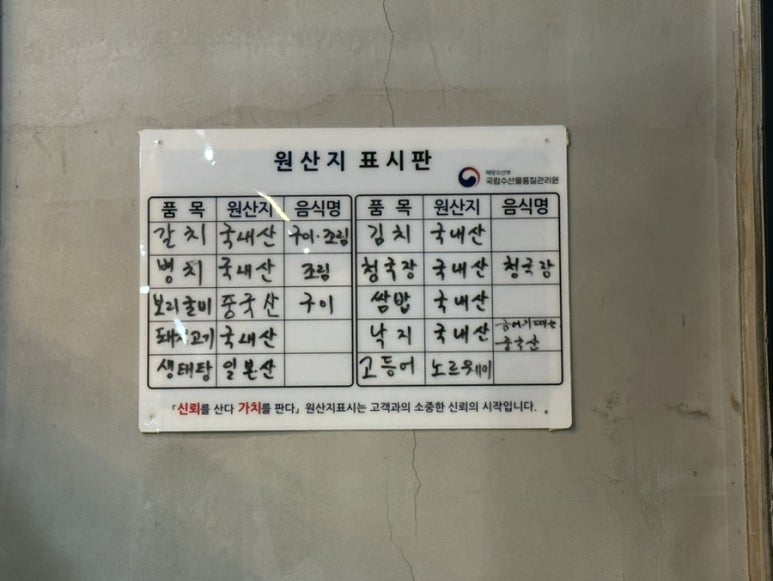 원산지 표시판
해양수산부
국립수산물품질관리원
품 목 원산지 음식명 품 목 원산지 음식명
갈치 국내산 구이·조림 김치 국내산
병치 국내산 조림 청국장 국내산 청국장
보리굴비 중국산 구이 쌈밥 국내산
돼지고기 국내산 낙지 국내산 중국산
생태탕 일본산 고등어 노르웨이
「신뢰를 산다 가치를 판다」 원산지표시는 고객과의 소중한 신뢰의 시작입니다.